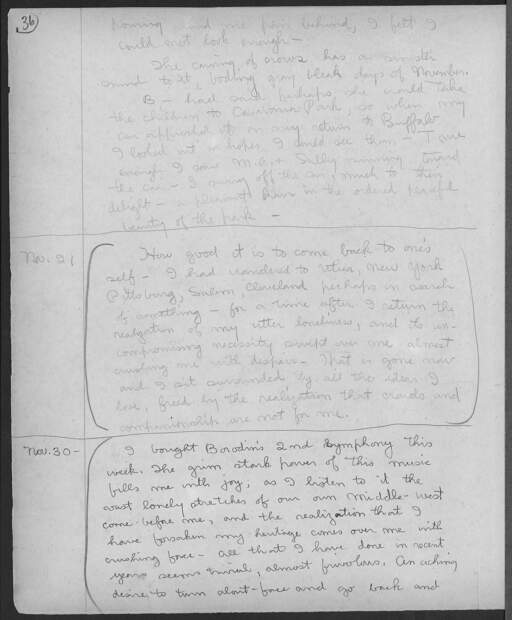 36
coming and me far behind, I felt I
could not look enough –
The cawing of crows has a sinister
sound to it, boding gray bleak days of November.
B – had said perhaps she would take
the children to Cazenovia Park so when my
car approached it on my return to Buffalo
I looked out in hopes I could see them – True
enough I saw M.A. + Sally running toward
the car – I swung off the car, much to their
delight – a pleasant hour in the ordered peaceful
beauty of the park –
Nov. 21
How good it is to come back to one's
self – I had wandered to Utica, New York
Pittsburg, Salem, Cleveland perhaps in search
of something – for a time after I return the
realization of my utter loneliness, and its un-
compromising necessity swept over me almost
crushing me with despair – That is gone now
and I sit surrounded by all the ideas I
love, freed by the realization that crowds and
companionship are not for me.
Nov. 30 –
I bought Borodin's 2nd Symphony this
week. The grim stark power of this music
fills me with joy; as I listen to it the
vast lonely stretches of our own middle-west
come before me, and the realization that I
have forsaken my heritage comes over me with
crushing force – all that I have done in recent
years seems trivial, almost frivolous. An aching
desire to turn about-face and go back and